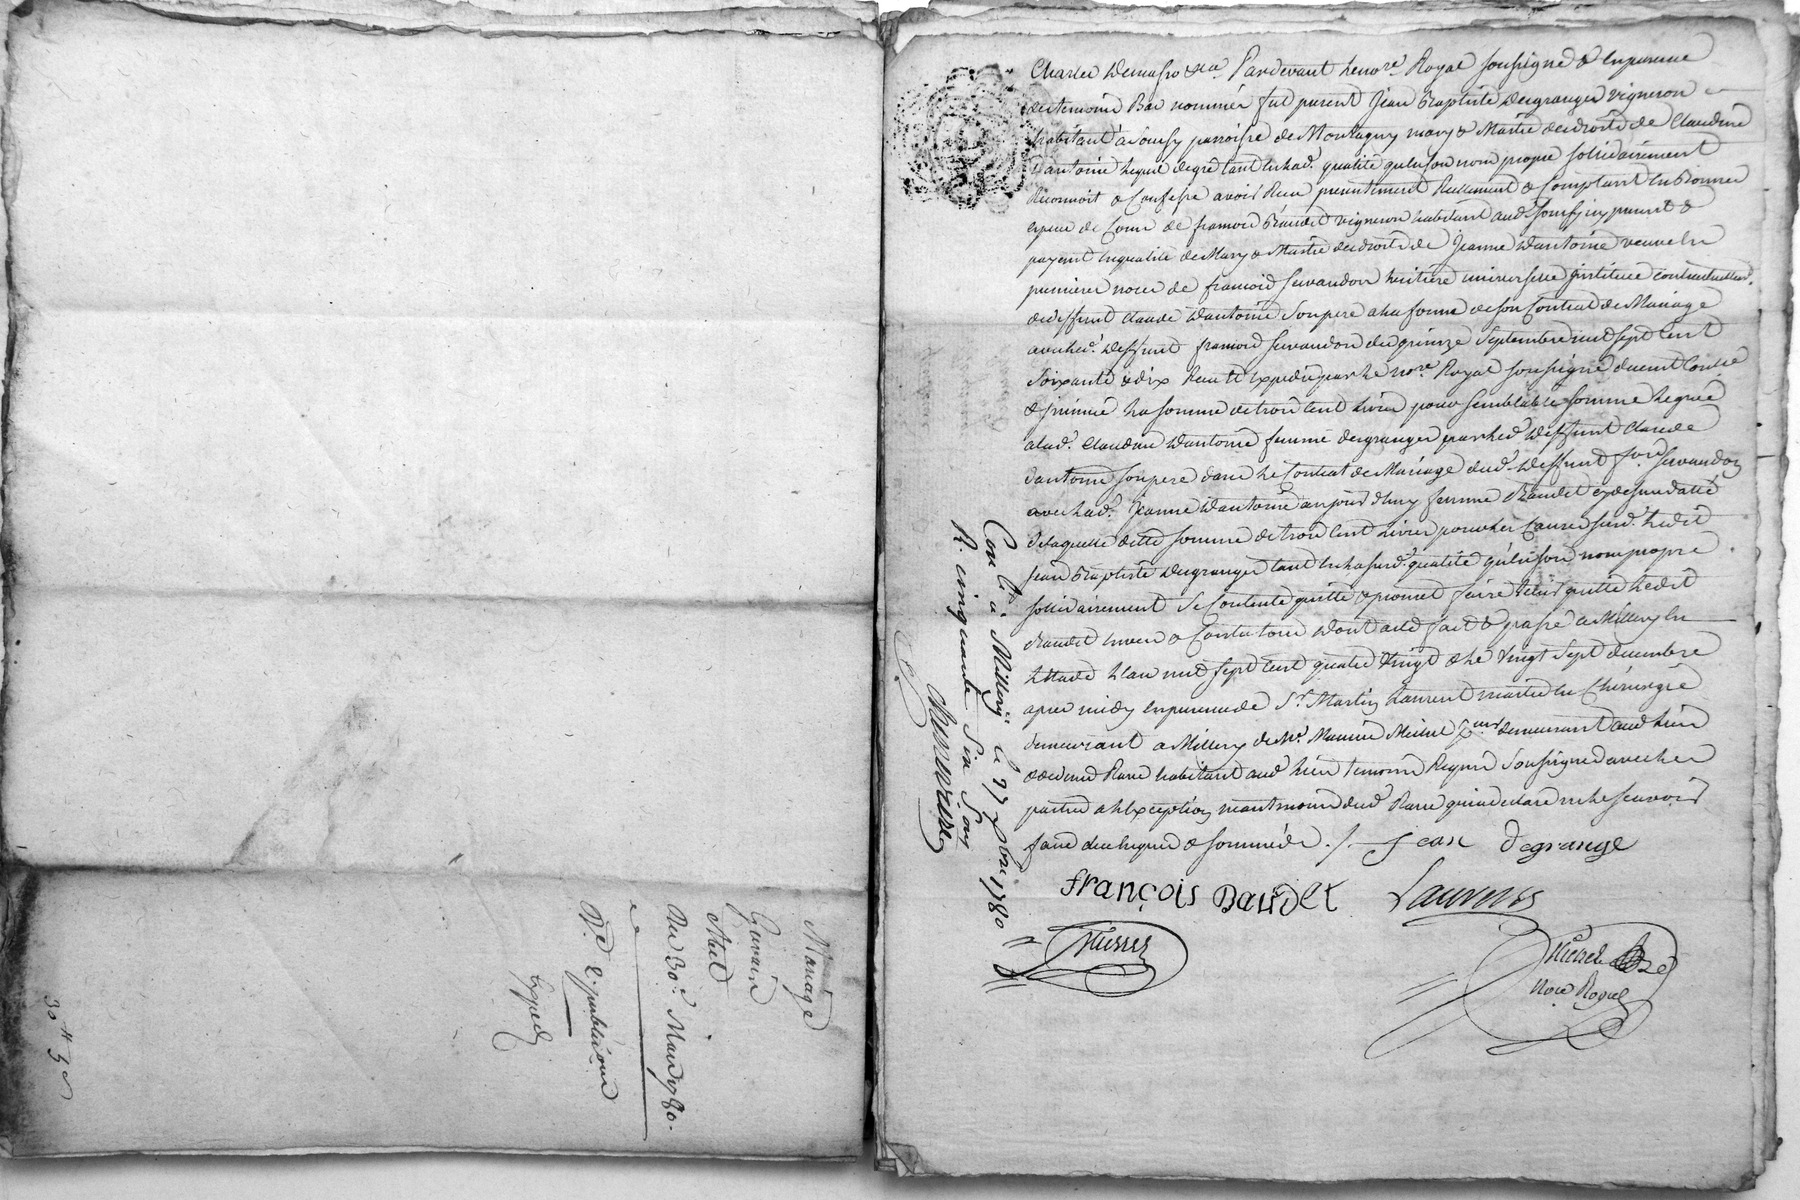 Mariage
Gervaire
Au 30.e May 1780.
2.e publication
30
Pardevant le no.re Royal soussigné & en presence
des temoins Bas nommés fut present Jean Baptiste Degranger vigneron
habitant a Soucy parroisse de Montagny mary & Maitre des droits de Claudine
Dantoine lequel degré tant en lad.e qualité qu'en son nom propre solidairement
Reconnoit & Confesse avoir Receu presentement Reellement & Comptant en Bonnes
especes de Cours de francois Baudet vigneron habitant aud. Soucy icy present &
payant en qualité de Mary & Maitre des droits de Jeanne Dantoine veuve en
premieres noces de francois Servandon heritiere universelle instituee contractuellem.t
de deffunt Claude Dantoine son pere a la forme de son Contrat de Mariage
avec led. deffunt francois Servandon du quinze Septembre mil sept cent
soixante & dix Receu & expedié par le no.re Royal soussigné duement Controlé
& insinué la somme de trois cent livres pour semblable somme leguée
a lad.e Claudine Dantoine femme degranger par led. deffunt Claude
Dantoine son pere dans le Contrat de Mariage dud. deffunt f.ois Servandon
avec lad.e Jeanne Dantoine aujourd'huy femme Baudet cy dessus datté
de laquelle ditte somme de trois cent livres pour les Causes susd. ledit
Jean Baptiste Degranger tant en la susd.e qualité qu'en son nom propre
sollidairement se Contente quitte & promet faire tenir quitte ledit
Baudet envers & Contre tous Dont acte fait & passé a Millery en
l'etude l'an mil sept cent quatre vingt & le vingt sept decembre
apres midy en presence de S.r Martin Laurent maitre en Chirurgie
demeurant a Millery de M.e Maurice Meissel demeurant aud. lieu
habitant aud. lieu temoins Requis soussignés avec les
parties a l'exception neantmoins dud. qui a declaré ne le scavoir
faire de ce enquis & sommé ./. Jean Degrange
François Baudet Laurent
No.re Royal
Con.lé à Millery le 27 Xbre 1780
R. cinquante six sous